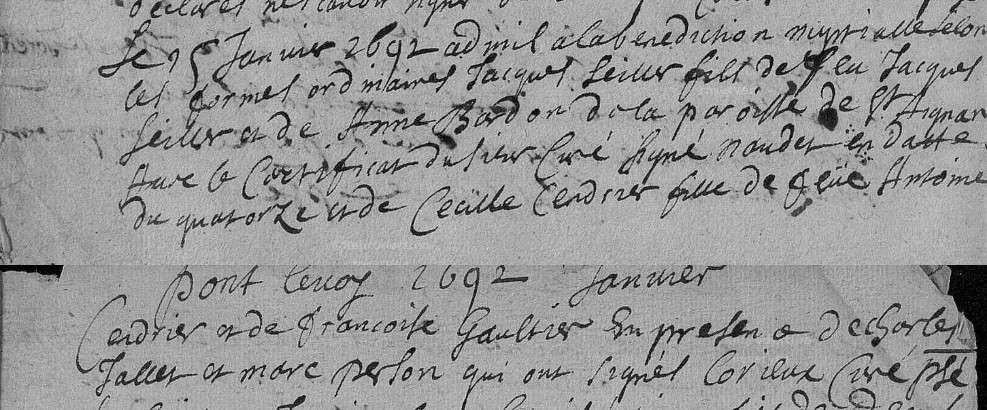 declarés ne scavoir signer
Le 15 Janvier 1692 admis a la benediction nuptialle selon
les formes ordinaires Jacques Seiller fils de feu Jacques
Seiller et de Anne Bardon de la paroisse de St Aignan
Avec le Certificat du sieur Curé signé naudet en datte
du quatorze et de Cecille Cendrier fille de feüe Antoine
pont levoy 1692 Janvier
Cendrier et de francoise Gaultier En presence de charles
Jallet et marc person qui ont signés Corieux Curé